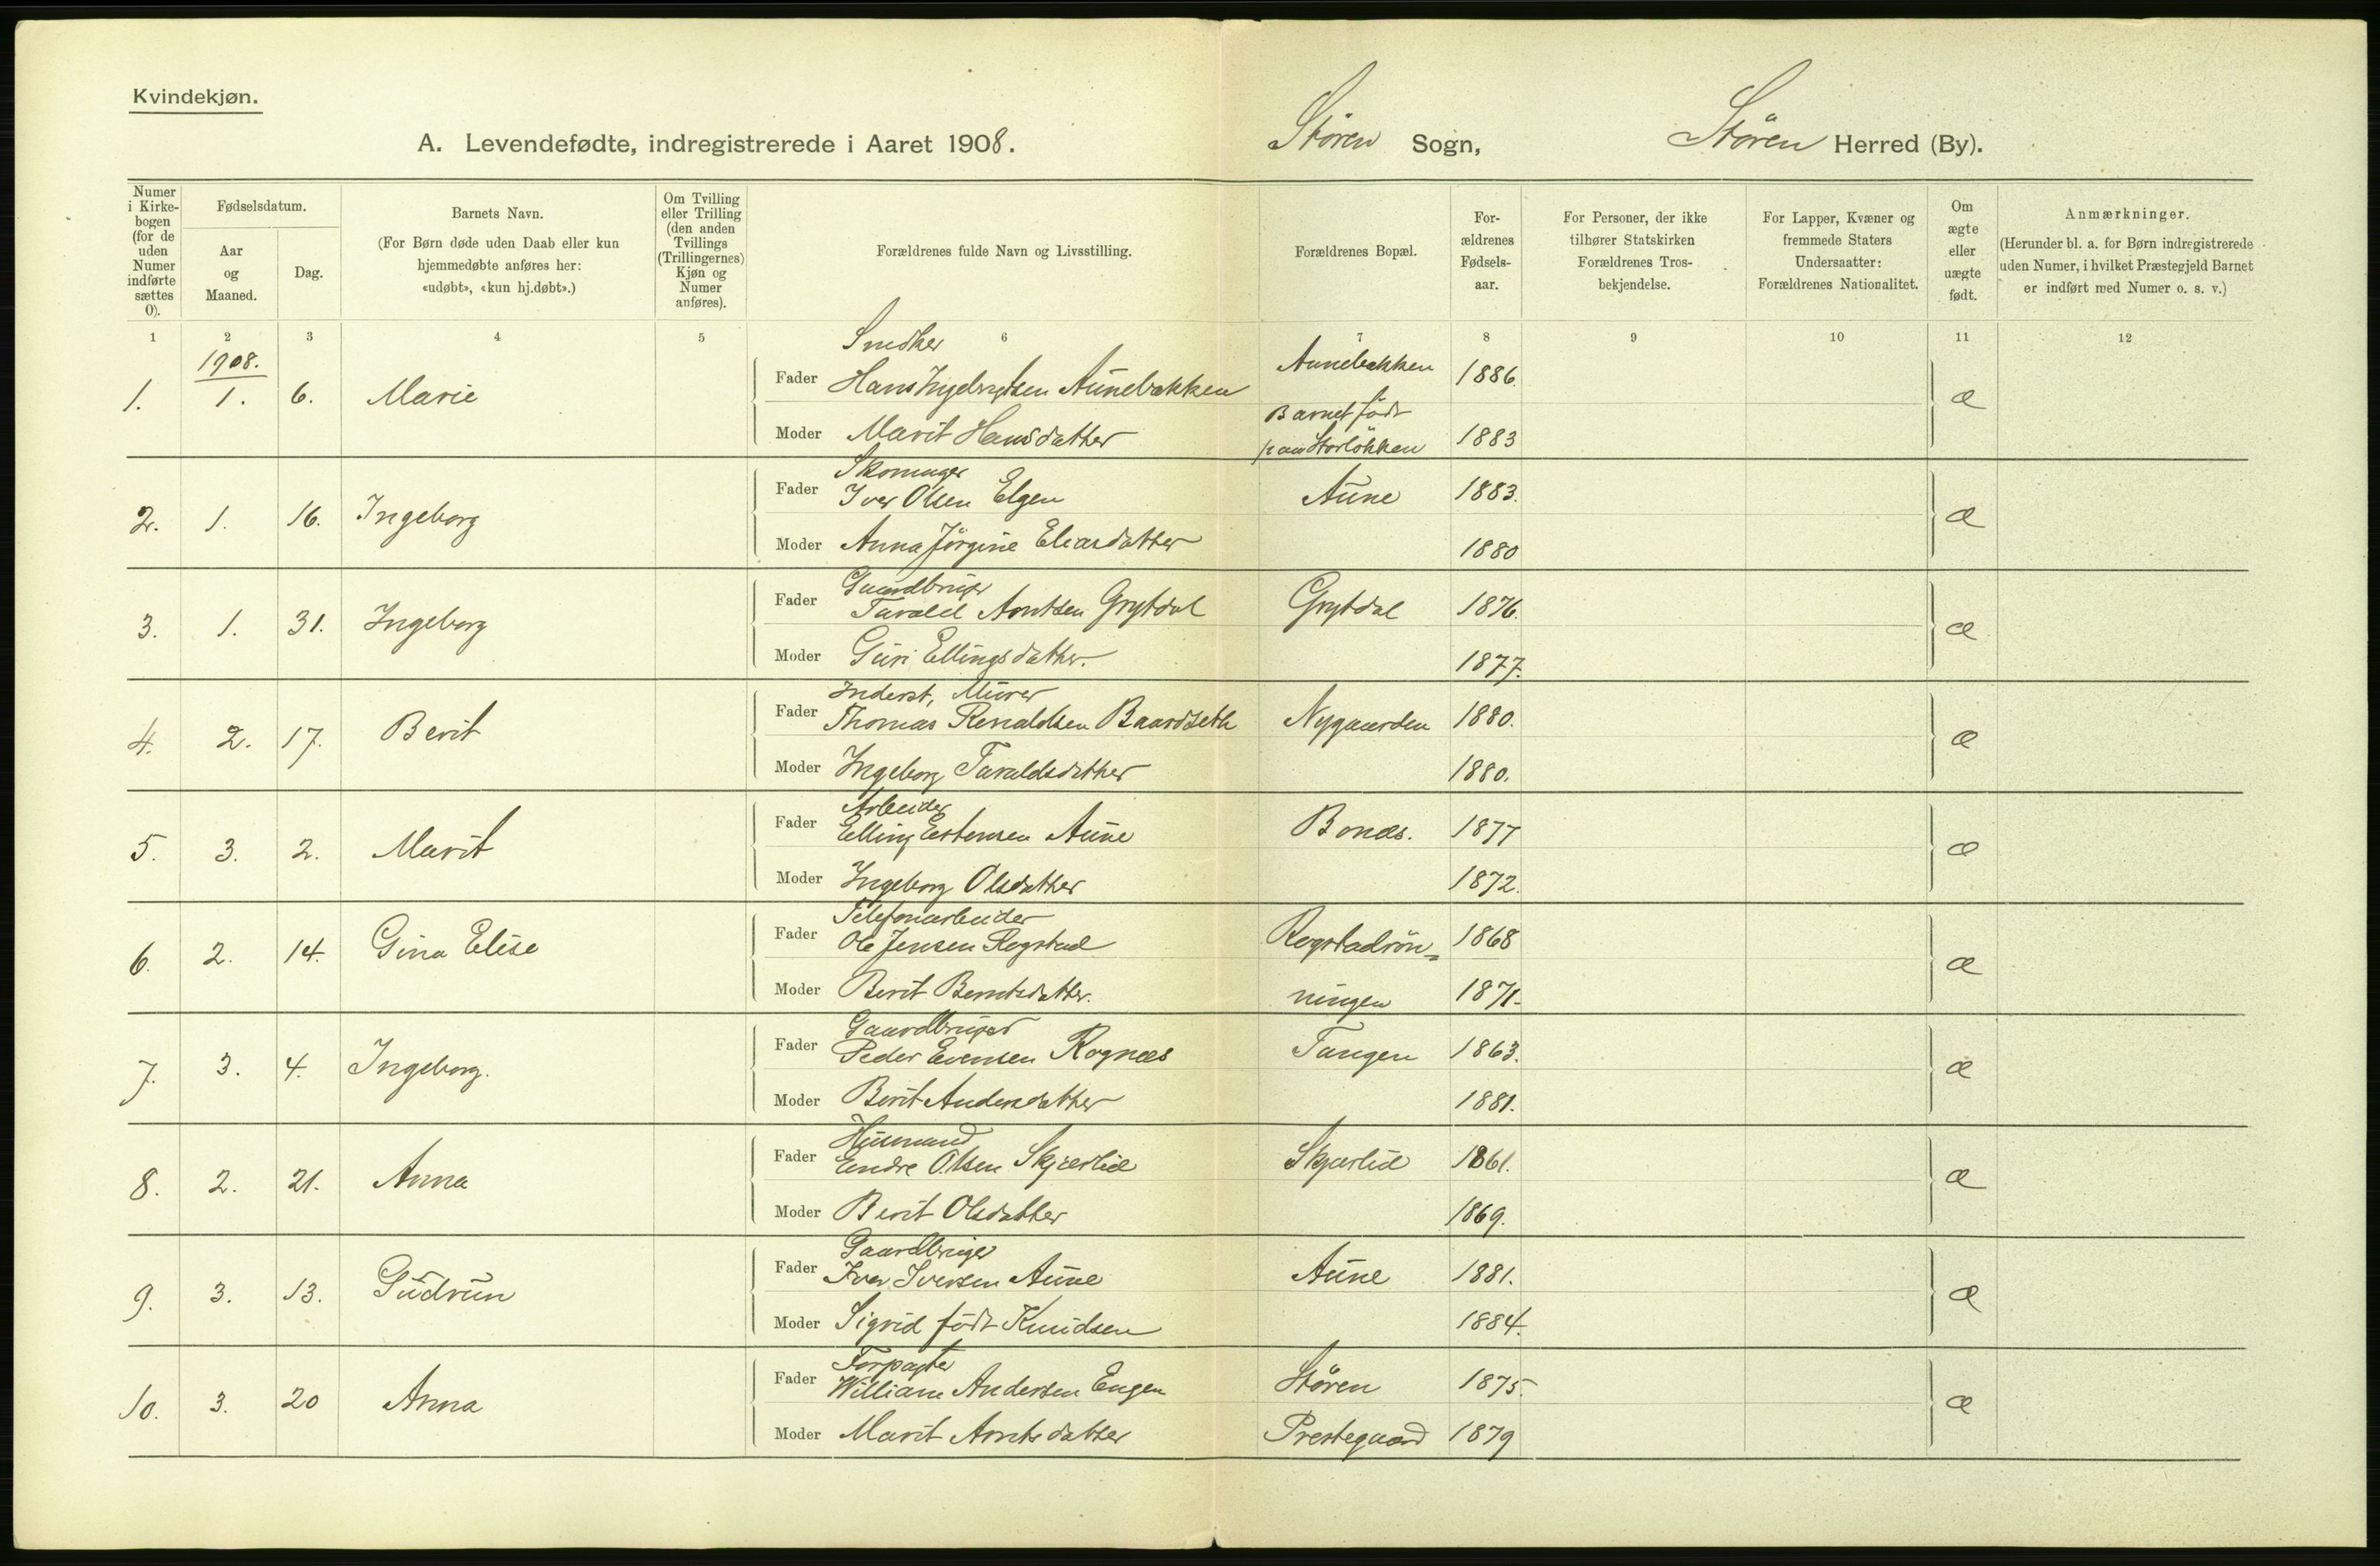 Kvindekjøn.
A. Levendefødte, indregistrerede i Aaret 1908.
Støren Sogn, Støren Herred (By).
Numer i Kirke-bogen (for de uden Numer indførte sættes 0).
Fødselsdatum.
Aar og Maaned.
Dag.
Barnets Navn.
(For Børn døde uden Daab eller kun hjemmedøbte anføres her: «udøbt», «kun hj.døbt».)
Om Tvilling eller Trilling (den anden Tvillings (Trillingernes) Kjøn og Numer anføres).
Forældrenes fulde Navn og Livsstilling.
Forældrenes Bopæl.
For-ældrenes Fødsels-aar.
For Personer, der ikke tilhører Statskirken Forældrenes Tros-bekjendelse.
For Lapper, Kvæner og fremmede Staters Undersaatter: Forældrenes Nationalitet.
Om ægte eller uægte født.
Anmærkninger.
(Herunder bl. a. for Børn indregistrerede uden Numer, i hvilket Præstegjeld Barnet er indført med Numer o. s. v.)
1 2 3 4 5 6 7 8 9 10 11 12
1908.
Snedker
1. 1. 6. Marie Fader Hans Ingebrigtsen Aunebakken Aunebakken 1886. æ
Barnet født
Moder Marit Hansdatter paa Storløkken 1883
Skomager
2. 1. 16. Ingeborg Fader Iver Olsen Elgen Aune 1883. æ
Moder Anna Jørgine Eliasdatter 1880
Gaardbruger
3. 1. 31. Ingeborg Fader Tarald Arntsen Grytdal Grytdal 1876. æ
Moder Guri Ellingsdatter. 1877.
Inderst, Murer
4. 2. 17. Berit Fader Thomas Renaldsen Baardseth Nygaarden 1880. æ
Moder Ingeborg Taraldsdatter 1880.
Arbeider
5. 3. 2. Marit Fader Elling Estensen Aune Bonæs. 1877 æ
Moder Ingeborg Olsdatter 1872.
Telefonarbeider
6. 2. 14. Gina Elise Fader Ole Jensen Rogstad Rogstadrøn= 1868 æ
Moder Berit Berntsdatter. ningen 1871.
Gaardbruger
7. 3. 4. Ingeborg. Fader Peder Evensen Rognæs Tangen 1863. æ
Moder Berit Andersdatter 1881.
Husmand
8. 2. 21. Anna Fader Endre Olsen Skjærlid Skjærlid 1861. æ
Moder Berit Olsdatter 1869.
Gaardbruger
9. 3. 13. Gudrun Fader Iver Iversen Aune Aune 1881. æ
Moder Sigrid født Knudsen 1884.
Forpagter
10. 3. 20 Anna Fader William Andersen Engen Støren 1875. æ
Moder Marit Arntsdatter Prestegaard 1879